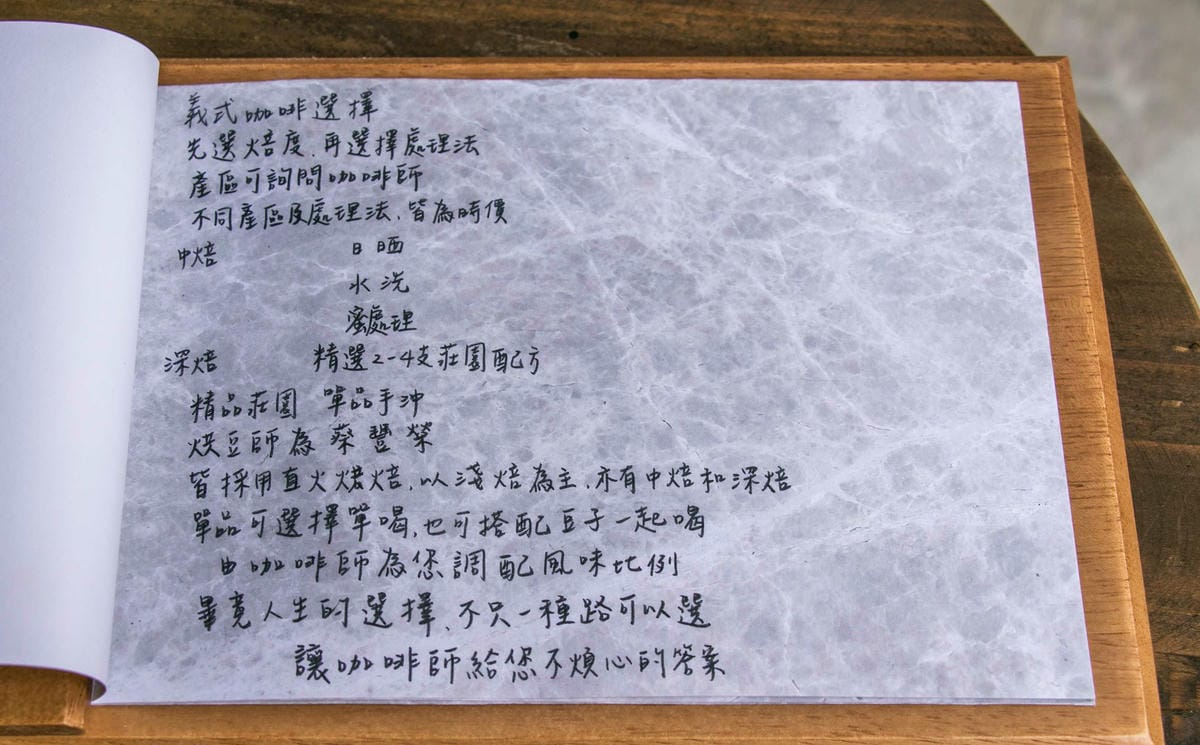 義式咖啡選擇
先選焙度、再選擇處理法
產區可詢問咖啡師
不同產區及處理法、皆為時價
中焙 日晒
水洗
蜜處理
深焙 精選2-4支莊園配方
精品莊園 單品手沖
烘豆師為蔡豐榮
皆採用直火烤焙、以淺焙為主、亦有中焙和深焙
單品可選擇單喝、也可搭配豆子一起喝
由咖啡師為您調配風味比例
畢竟人生的選擇、不只一種路可以選
讓咖啡師給您不煩心的答案